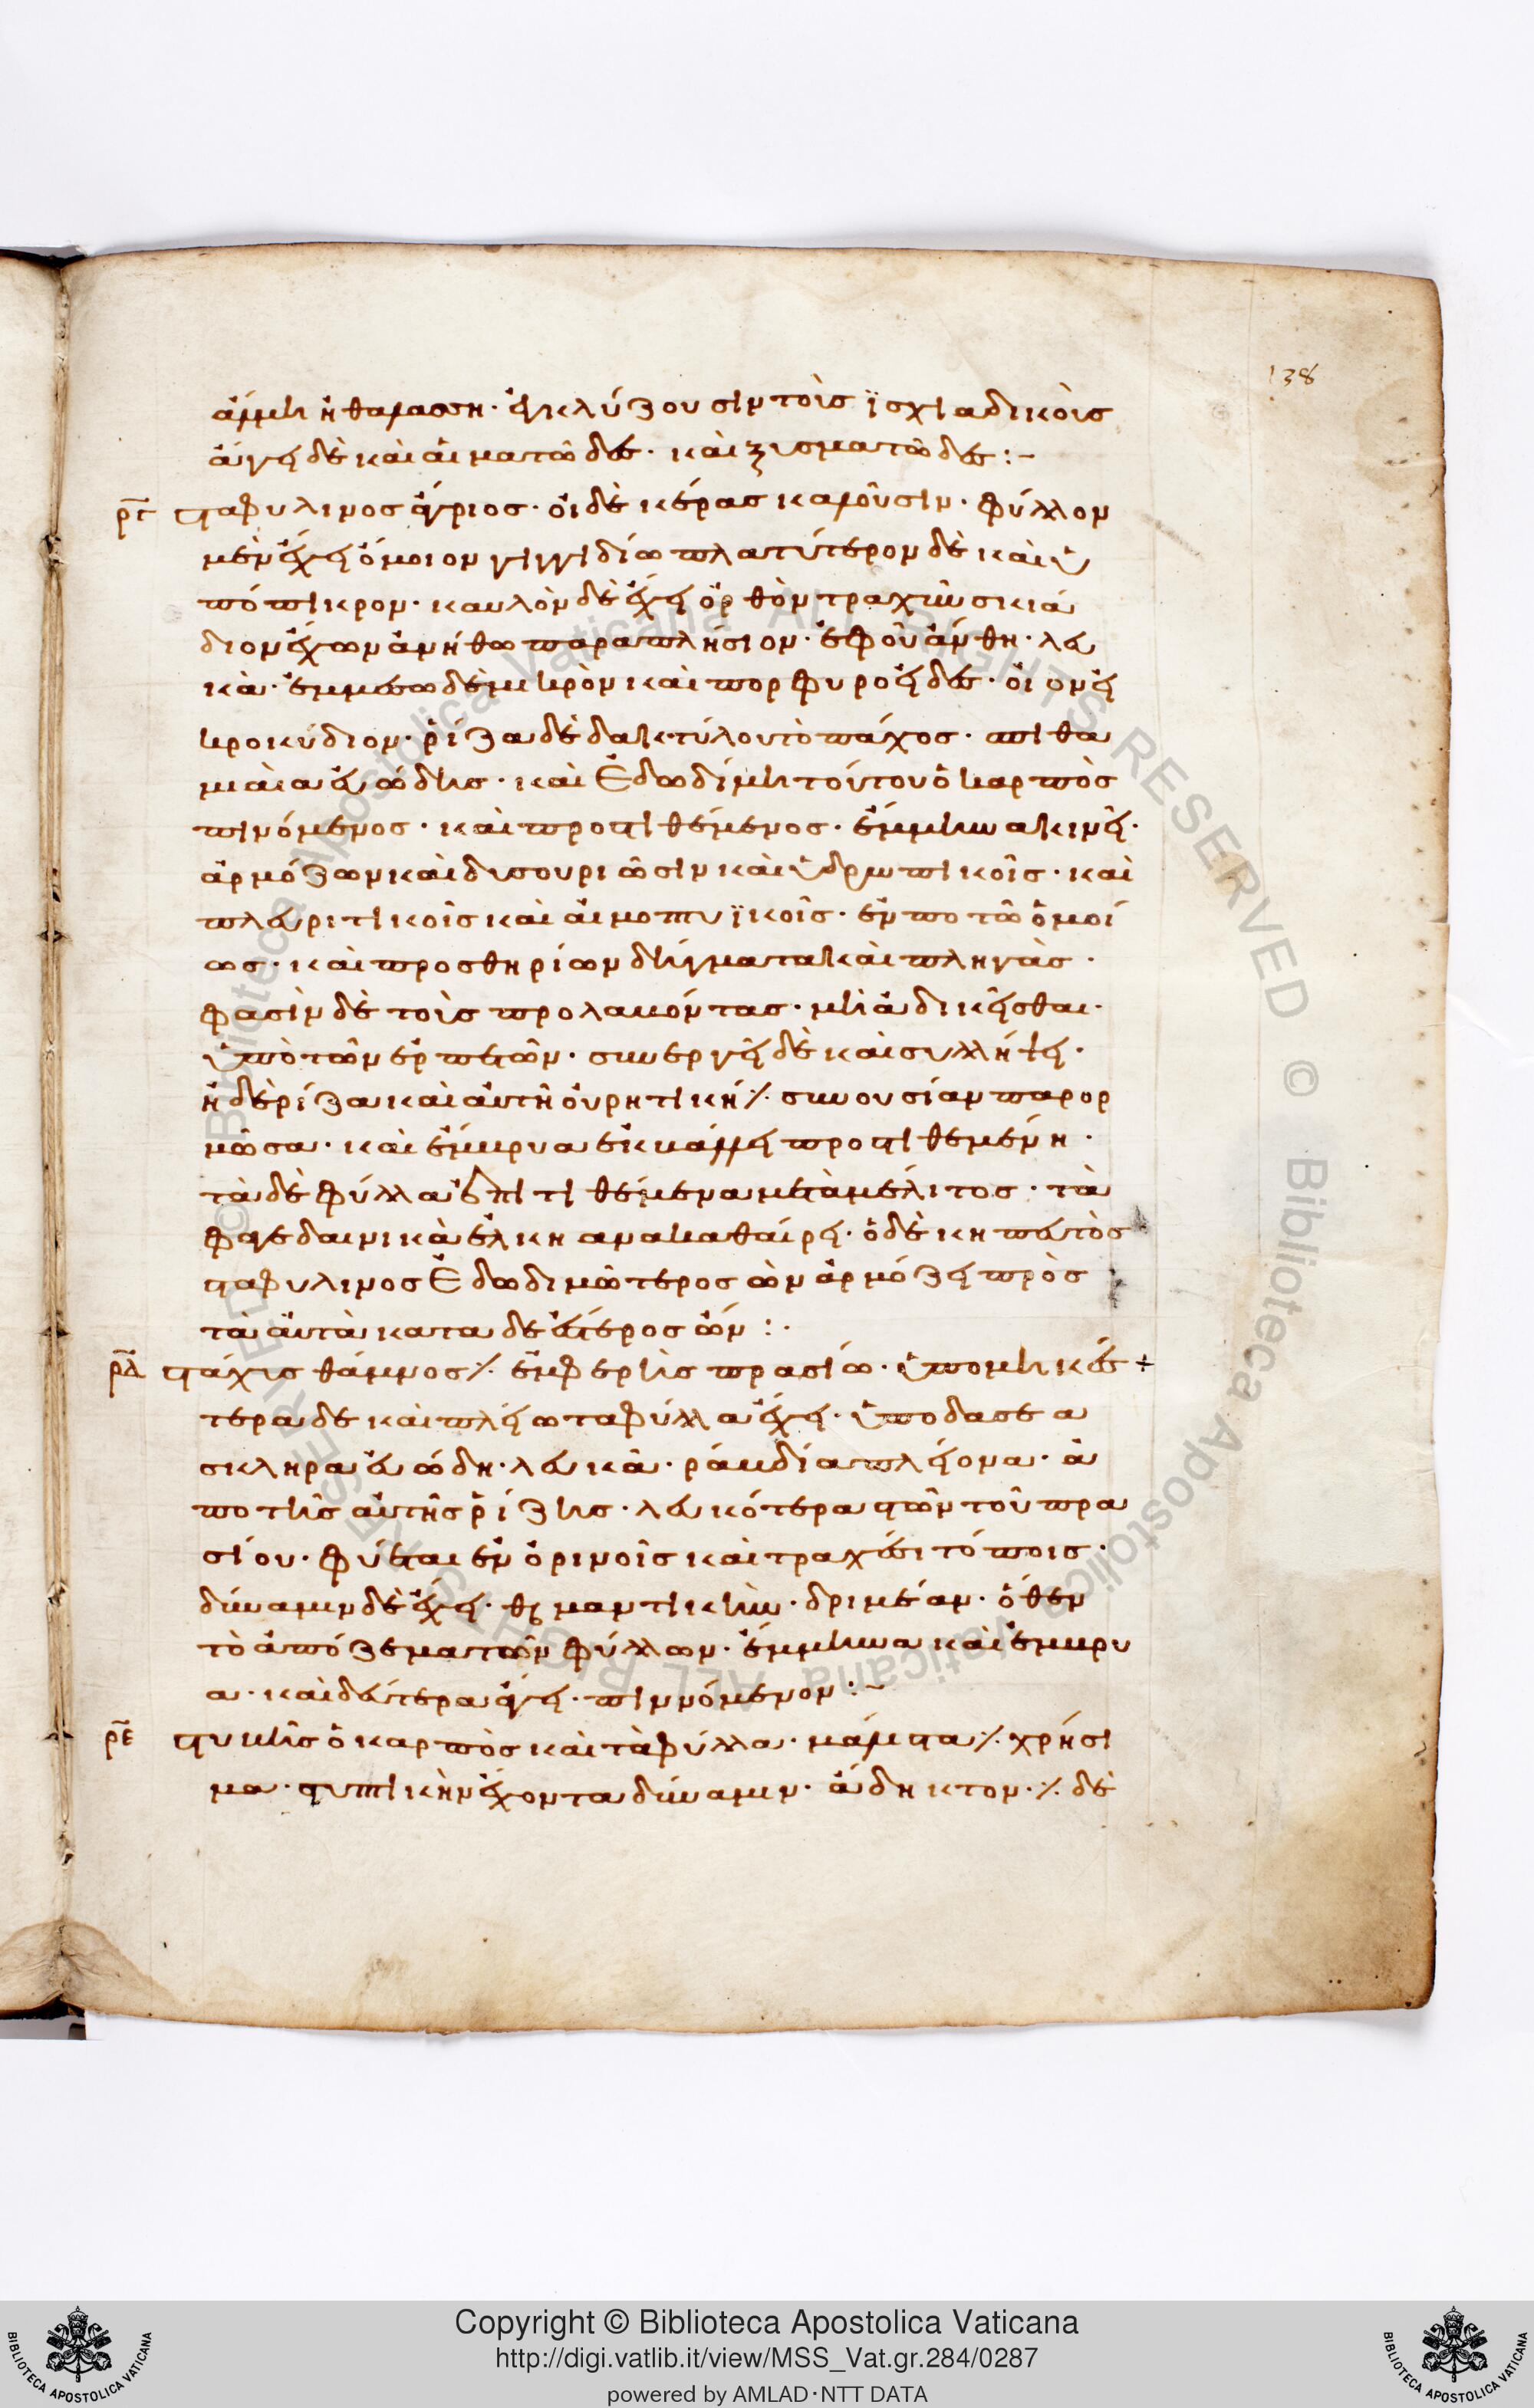 138
ἅλμη ἢ θαλάσση· ἐγκλύζουσιν τοῖς ἰσχιαδικοῖς
ἄγει δὲ καὶ αἱματῶδες· καὶ ξυσματῶδες :-
ργ σταφυλῖνος ἄγριος· οἱ δὲ κέρας καλοῦσιν· φύλλον
μὲν ἔχει ὅμοιον γιγγιδίω πλατύτερον δὲ καὶ ὑ
πόπικρον· καυλὸν δὲ ἔχει ὀρθὸν τραχὺν σκιά
διον ἔχων ἀνήθω παραπλήσιον· ἐφ οὗ ἄνθη· λευ
κὰ· ἐν μέσω δὲ μικρὸν καὶ πορφυροειδές· οἱονεὶ
κροκύδιον· ῥίζα δὲ δακτύλου τὸ πάχος· σπιθα
μιαία εὐώδης· καὶ ἐδωδίμη τούτου ὁ καρπὸς
πινόμενος· καὶ προστιθέμενος· ἔμμηνα κινεῖ·
ἁρμόζων καὶ δυσουριῶσιν καὶ ὑδρωπικοῖς· καὶ
πλευριτικοῖς καὶ αἱμοπτυϊκοῖς· ἐν ποτῶ ὁμοί
ως· καὶ προς θηρίων δήγματα καὶ πληγὰς·
φασὶν δὲ τοὺς προλαβόντας· μὴ ἀδικεῖσθαι·
ὑπὸ τῶν ἑρπετῶν· συνεργεῖ δὲ καὶ συλλήψει·
ἡ δὲ ῥίζα καὶ αὐτὴ οὐρητική ⁒ συνουσίαν παρορ
μῶσα· καὶ ἔμβρυα ἐκβάλλει προστιθεμένη·
τὰ δὲ φύλλα ἐπιτιθέμενα μετὰ μέλιτος· τὰ
φαγεδαινικὰ ἕλκη ανακαθαίρει· ὁ δὲ κηπευτὸς
σταφυλῖνος ἐδωδιμώτερος ὢν ἁρμόζει πρὸς
τὰ αὐτὰ καταδεέστερος ὤν :·
ρδ στάχυς θάμνος ⁒ ἐμφερὴς πρασίω· ὑπομηκέσ +
τερα δε καὶ πλείω τα φύλλα ἔχει· ὑποδασεα
σκληρα εὐώδη· λευκὰ· ράβδία πλείονα· ἀ
πο τῆς αὐτῆς ῥίζης· λευκότερα τῶν τοῦ πρα
σίου· φύεται ἐν ὀρινοῖς καὶ τραχέσι τόποις·
δύναμιν δὲ ἔχει· θερμαντικὴν· δριμεῖαν· ὅθεν
τὸ ἀπόζεμα τῶν φύλλων· ἔμμηνα καὶ ἔμβρυ
α· καὶ δεύτερα ἄγει· πιννόμενον :~
ρε στυβῆς ὁ καρπὸς καὶ τὰ φύλλα· μάλιστα ⁒ χρήσι
μα· στυπτικὴν ἔχοντα δύναμιν· ἄδηκτον· ⁒ δὲ
Copyright © Biblioteca Apostolica Vaticana
http://digi.vatlib.it/view/MSS_Vat.gr.284/0287
powered by AMLAD·NTT DATA
BIBLIOTECA APOSTOLICA VATICANA
BIBLIOTECA APOSTOLICA VATICANA
© Biblioteca Apostolica Vaticana ALL RIGHTS RESERVED
© Biblioteca Apostolica Vaticana ALL RIGHTS RESERVED